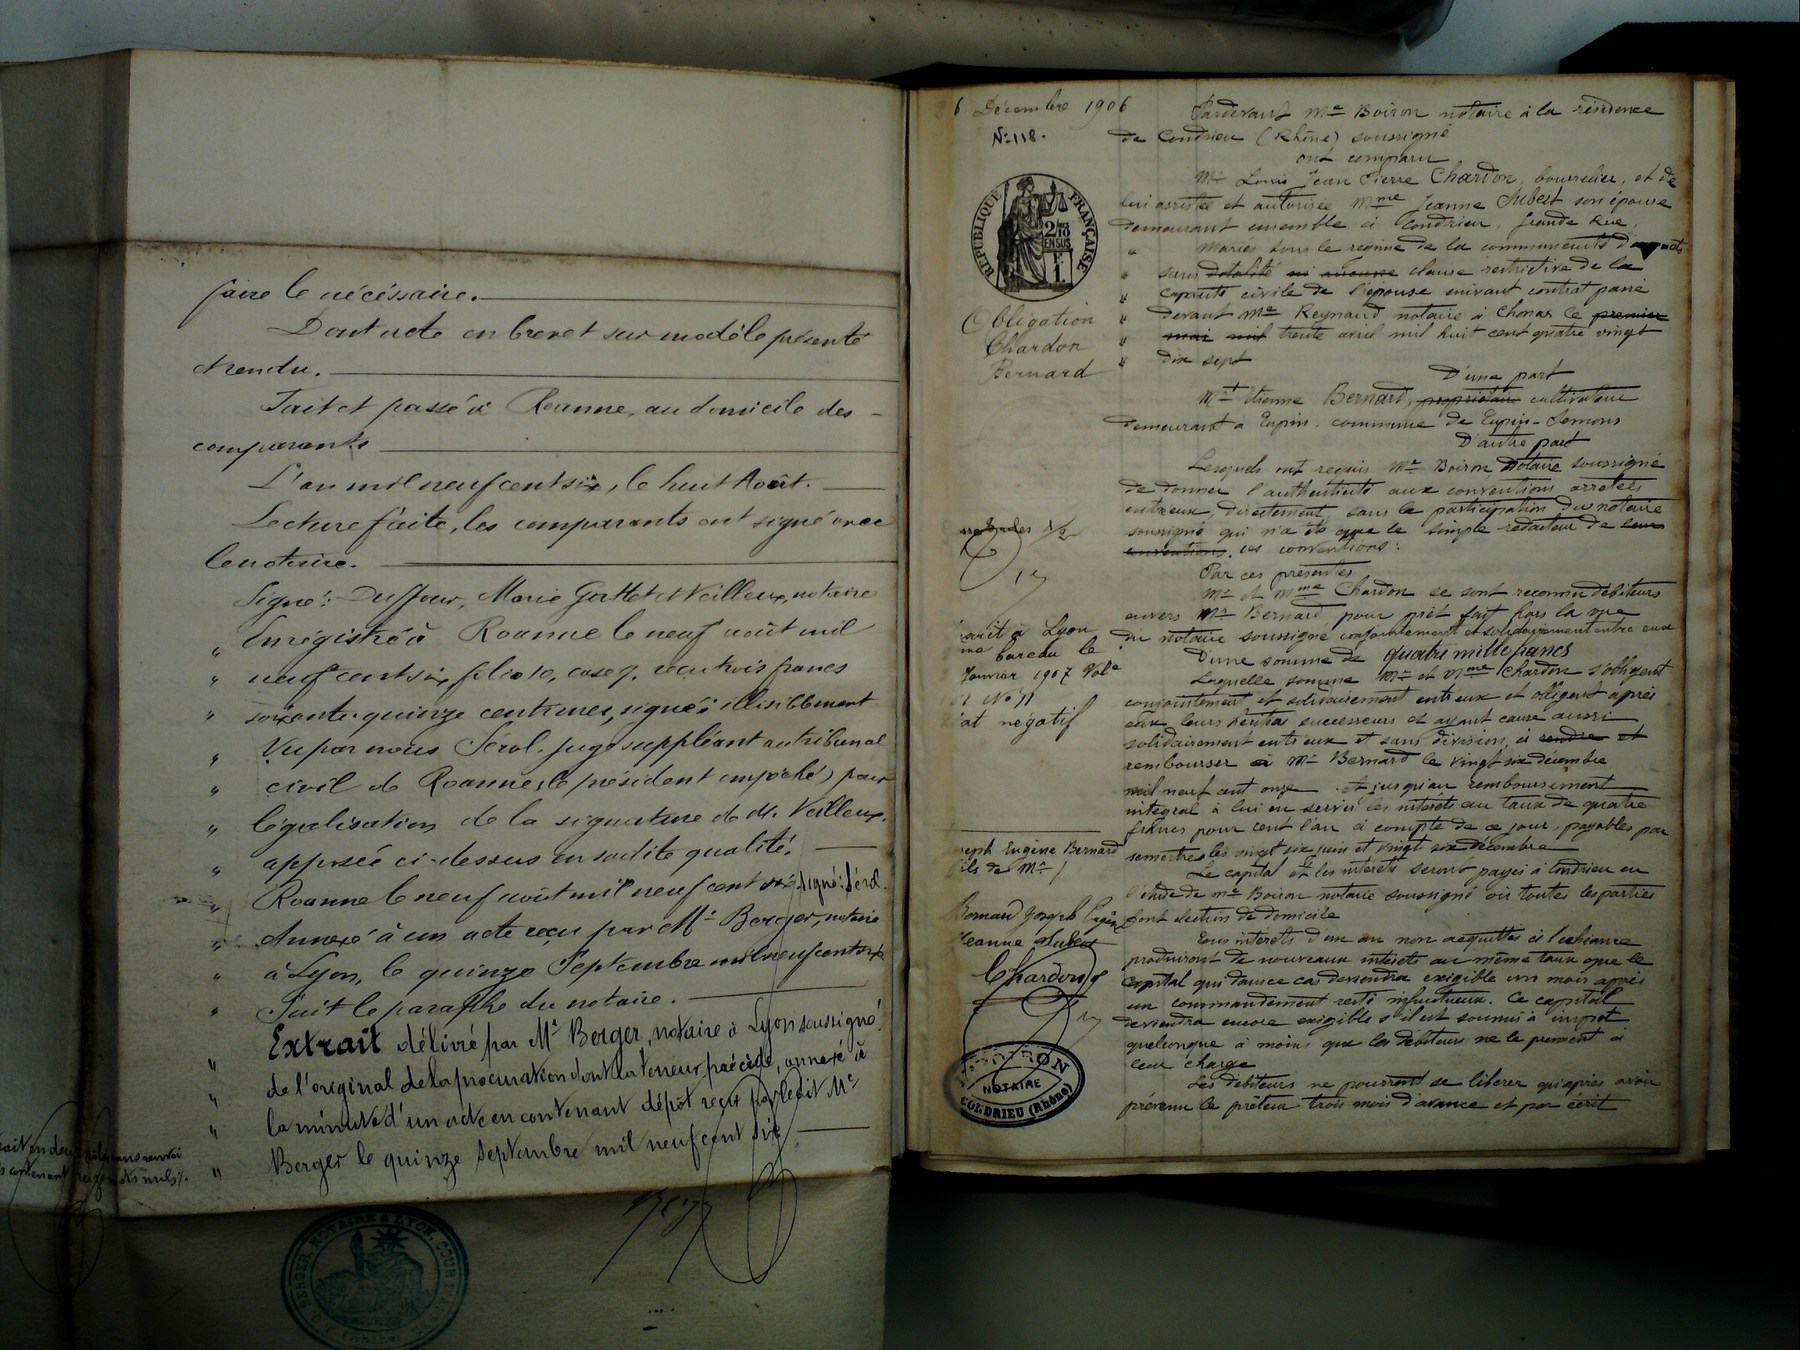 faire le nécéssaire.
Dont acte en brevet sur modèle présenté
et rendu.
Fait et passé à Roanne, au domicile des
comparants
L'an mil neuf cent six, le huit Août.
Lecture faite, les comparants ont signé avec
le notaire.
Signé: Duffour, Marie Gattet et Veilleux, notaire
" Enregistré à Roanne le neuf août mil
" neuf cent six, folio 10, case 9, reçu trois francs
" soixante-quinze centimes, signé: illisiblement
" Vu par nous Sérol, juge suppléant au tribunal
" civil de Roanne (le président empêché) pour
" légalisation de la signature de M. Veilleux,
" apposée ci-dessus en sa dite qualité.
" Roanne le neuf août mil neuf cent six signé: Sérol.
" Annexé à un acte reçu par Me Berger, notaire
" à Lyon, le quinze Septembre mil neuf cent six
" Suit le paraphe du notaire.
" Extrait délivré par Me Berger, notaire à Lyon soussigné
" de l'original de la procuration dont la teneur précède, annexé à
" la minute d'un acte en contenant dépôt reçu par ledit Me
" Berger le quinze Septembre mil neuf cent six
sans renvoi
contenant mots nuls
BERGER, NOTAIRE A LYON
6 Décembre 1906
No 118.
RÉPUBLIQUE FRANÇAISE
2/10
EN SUS
1 F.
Obligation
Chardon
Bernard
Pardevant Me Boiron notaire à la résidence
de Condrieu (Rhône) soussigné
ont comparu
Mr Louis Jean Pierre Chardon, bourrelier, et de
lui assistée et autorisée Mme Jeanne Jubert son épouse
demeurant ensemble à Condrieu, grande rue,
" Mariés sous le régime de la communauté d'acquêts
" sans dotalité ni aucune clause restrictive de la
" capacité civile de l'épouse suivant contrat passé
" devant Me Reynaud notaire à Chonas le premier
" mai mil trente avril mil huit cent quatre vingt
" dix sept
D'une part
Mr Etienne Bernard, propriétaire cultivateur
demeurant à Tupin, commune de Tupin-Semons
D'autre part
Lesquels ont requis Me Boiron notaire soussigné
de donner l'authenticité aux conventions arrêtées
entre eux, directement, sans la participation du notaire
soussigné qui n'a été que le simple rédacteur de leurs
conventions, ces conventions:
Par ces présentes
Mr et Mme Chardon se sont reconnu débiteurs
envers Mr Bernard pour prêt fait hors la vue
du notaire soussigné conjointement et solidairement entre eux
D'une somme de quatre mille francs
Laquelle somme Mr et Mme Chardon s'obligent
conjointement et solidairement entre eux et obligent après
eux leurs héritiers successeurs et ayant cause aussi
solidairement entre eux et sans division, à rendre et
rembourser à Mr Bernard le vingt six décembre
mil neuf cent onze et jusqu'au remboursement
intégral à lui en servir les intérêts au taux de quatre
francs pour cent l'an à compter de ce jour, payables par
semestres les vingt six juin et vingt six décembre
Le capital et les intérêts seront payés à Condrieu en
l'étude de Me Boiron notaire soussigné où toutes les parties
font élection de domicile
Tous intérêts d'un an non acquittés à l'échéance
produiront de nouveaux intérêts au même taux que le
capital qui dans ce cas deviendra exigible un mois après
un commandement resté infructueux. Ce capital
deviendra encore exigible s'il est soumis à impôt
quelconque à moins que les débiteurs ne le prennent à
leur charge
Les débiteurs ne pourront se libérer qu'après avoir
prévenu le prêteur trois mois d'avance et par écrit
Lyon
bureau le
Janvier 1907 Vole
No 71
négatif
Joseph Eugène Bernard
fils de Mr
Bernard Joseph Eugène
Jeanne Jubert
Chardon
BOIRON
NOTAIRE
CONDRIEU (Rhône)